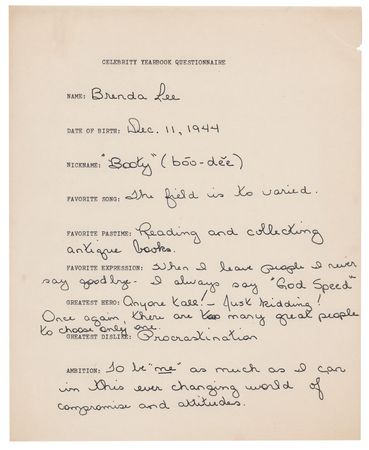 CELEBRITY YEARBOOK QUESTIONNAIRE
NAME: Brenda Lee
DATE OF BIRTH: Dec. 11, 1944
NICKNAME: "Booty" (bōo-dēe)
FAVORITE SONG: The field is to varied.
FAVORITE PASTIME: Reading and collecting
antique books.
FAVORITE EXPRESSION: When I leave people I never
say goodbye - I always say "God Speed"
GREATEST HERO: Anyone tall! - Just kidding!
Once again, there are too many great people
to choose only one.
GREATEST DISLIKE: Procrastination
AMBITION: To be "me" as much as I can
in this ever changing world of
compromise and attitudes.